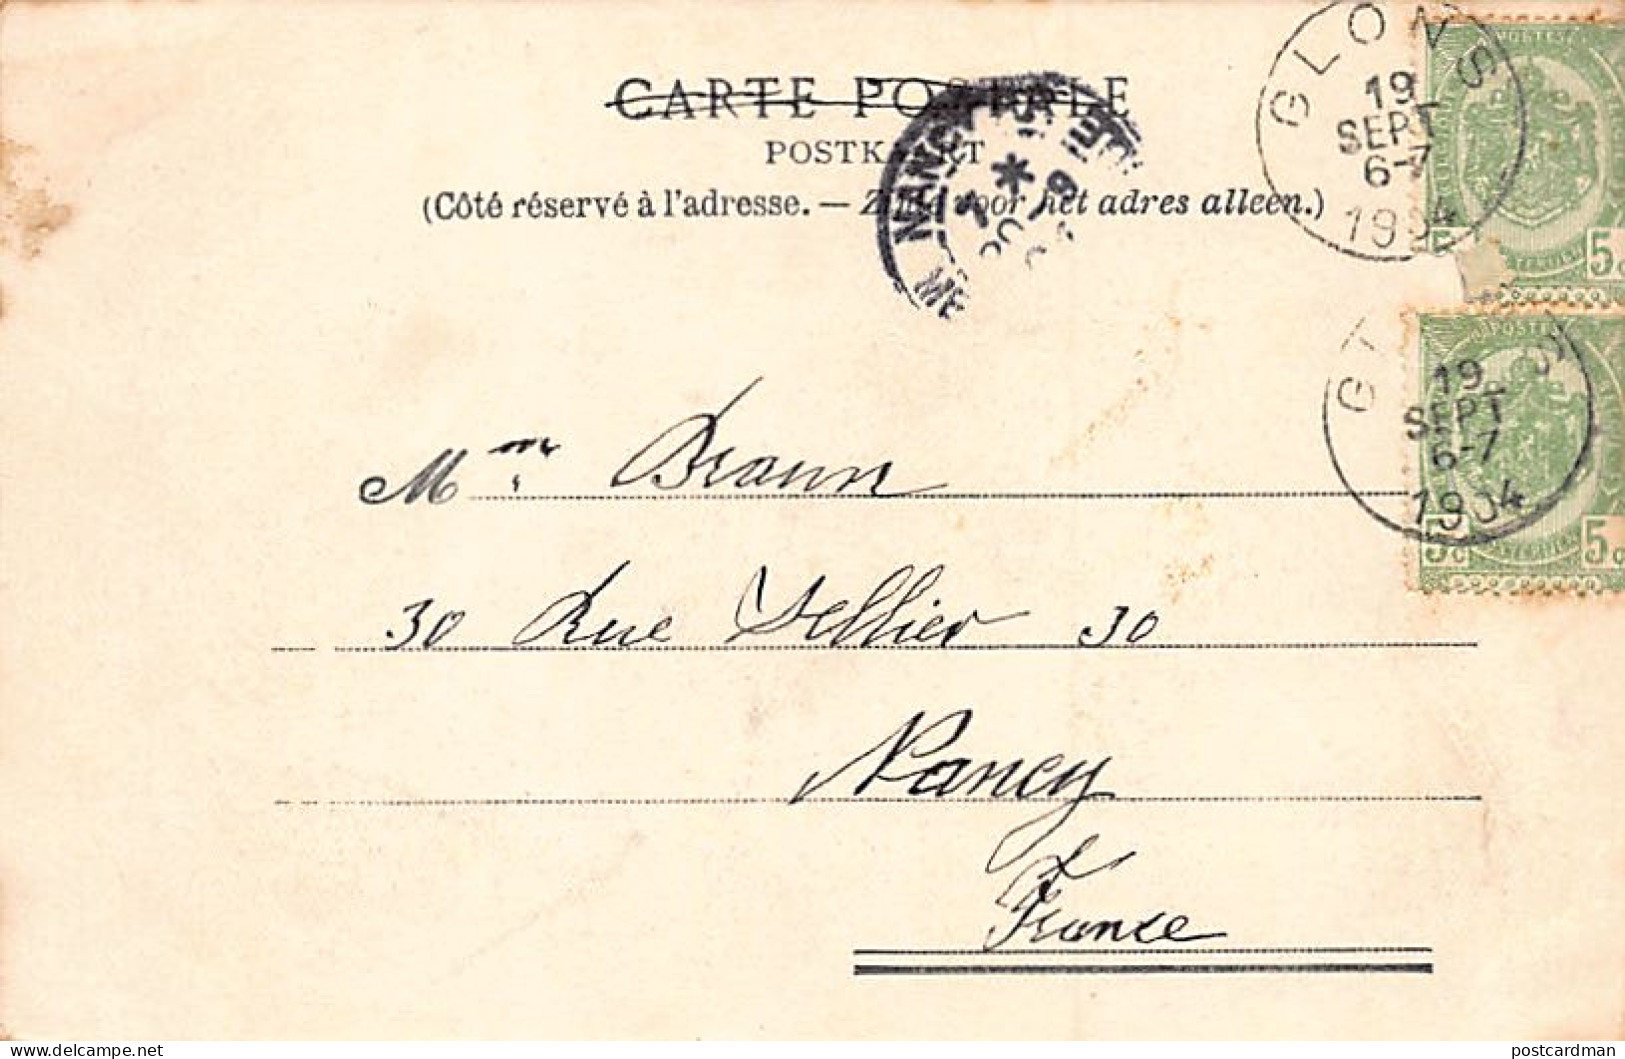 CARTE POSTALE
POSTKAART
(Côté réservé à l'adresse. — Zijde voor het adres alleen.)
GLONS
19
SEPT
6-7
1904
NANCY
POSTES
5c
19
SEPT
6-7
1904
POSTES
5c 5c
Mme Braun
30 Rue Sellier 30
Nancy
France
www.delcampe.net
postcardman